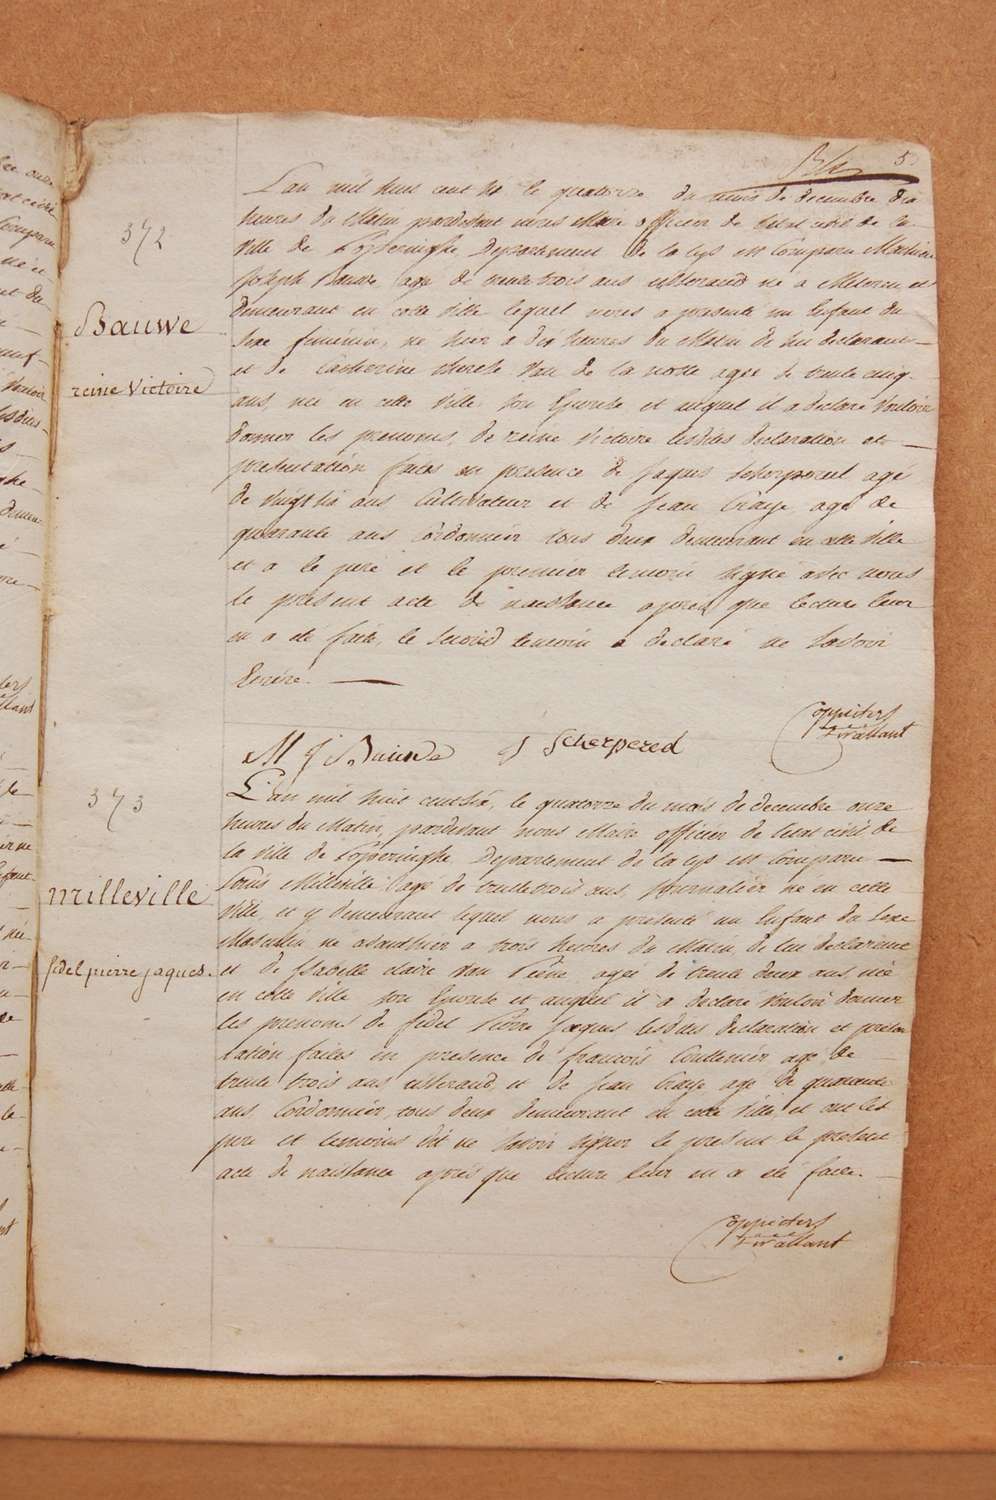 5
372
Bauwe
reine Victoire
L'an mil huit cent six le quatorze du mois de decembre dix
heures du Matin pardevant nous Maire officier de l'etat civil de la
ville de Poperinghe Departement de la Lys est Comparu Mathieu
Joseph Bauwe, agé de trente trois ans tisserand né a Meteren et
demeurant en cette ville lequel nous a presenté un Enfant du
sexe feminin, né hier a dix heures du Matin de lui declarant
et de Catherine therese Van de la notte agée de trente cinq
ans, née en cette ville son Epouse et auquel il a declaré vouloir
donner les prenoms, de reine Victoire lesdites declaration et
presentation faites en presence de Jaques Scherpereel agé
de vingt six ans Cultivateur et de Jean Craye agé de
quarante ans Cordonnier tous deux demeurant en cette ville
et a le pere et le premier temoin signé avec nous
le present acte de naissance apres que lecture leur
en a eté faite, le second temoin a declaré ne savoir
Ecrire.
M J Bauwe J Scherpereel
Coppieters
t' wallant
373
milleville
fidel pierre jaques
L'an mil huit cent six, le quatorze du mois de decembre onze
heures du Matin, pardevant nous Maire officier de l'etat civil de
la ville de Poperinghe Departement de la Lys est Comparu
Louis Milleville agé de trente trois ans, Journalier né en cette
ville, et y demeurant lequel nous a presenté un Enfant du Sexe
Masculin né avanthier a trois heures du Matin, de lui declarant
et de Isabelle claire Van Peene agée de trente deux ans née
en cette ville son Epouse et auquel il a declaré vouloir donner
les prenoms de fidel Pierre Jaques lesdites declaration et presen
tation faites en presence de francois Coutenier agé de
trente trois ans tisserand, et de Jean Craye agé de quarante
ans Cordonnier, tous deux demeurant en cette ville, et ont les
pere et temoins dit ne savoir signer le present le present
acte de naissance après que lecture leur en a eté faite.
Coppieters
t' wallant